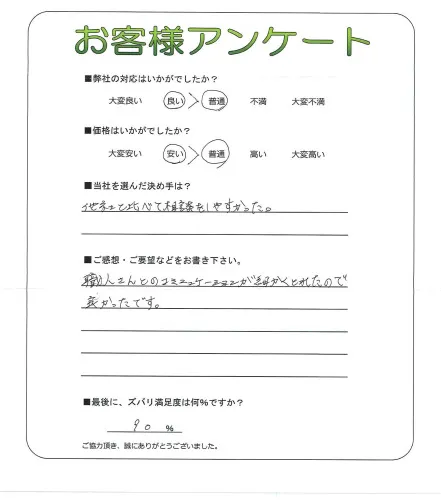 お客様アンケート
■弊社の対応はいかがでしたか?
大変良い 良い > 普通 不満 大変不満
■価格はいかがでしたか?
大変安い 安い > 普通 高い 大変高い
■当社を選んだ決め手は?
他社と比べて相談をしやすかった。
■ご感想・ご要望などをお書き下さい。
職人さんとのコミュニケーションが細かくとれたので
良かったです。
■最後に、ズバリ満足度は何%ですか?
90 %
ご協力頂き、誠にありがとうございました。